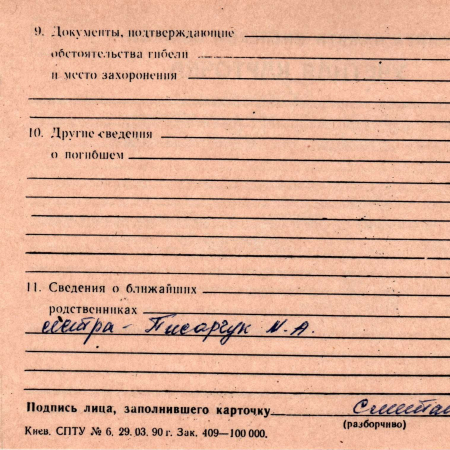 9. Документы, подтверждающие
обстоятельства гибели
и место захоронения
10. Другие сведения
о погибшем
11. Сведения о ближайших
родственниках
сестра - Писарчук М.А.
Подпись лица, заполнившего карточку
(разборчиво)
Киев. СПТУ № 6, 29. 03. 90 г. Зак. 409—100 000.